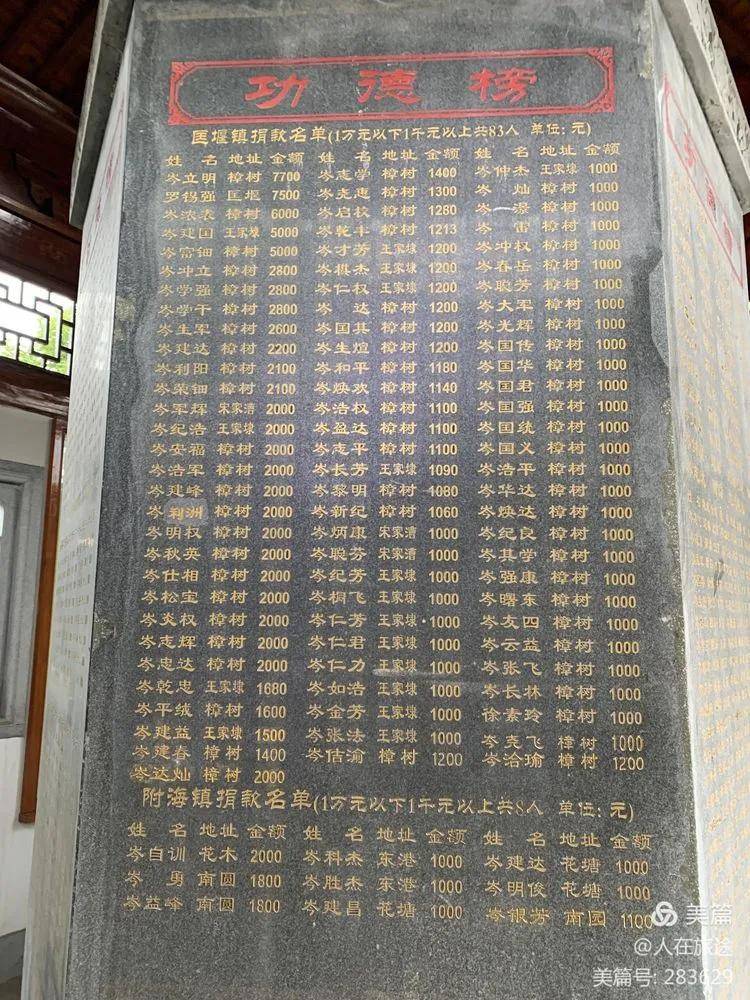 功德榜
匡堰镇捐款名单(1万元以下1千元以上共83人 单位:元)
姓 名 地址 金额 姓 名 地址 金额 姓 名 地址 金额
岑立明 樟树 7700 岑志学 樟树 1400 岑仲杰 王家埭 1000
罗锡强 匡堰 7500 岑尧惠 樟树 1300 岑 灿 樟树 1000
岑浓表 樟树 6000 岑启钦 樟树 1280 岑 濠 樟树 1000
岑建国 王家埭 5000 岑乾丰 樟树 1213 岑 雷 樟树 1000
岑富钿 樟树 5000 岑才芳 王家埭 1200 岑冲权 樟树 1000
岑冲立 樟树 2800 岑桃杰 王家埭 1200 岑春岳 樟树 1000
岑学强 樟树 2800 岑仁权 王家埭 1200 岑聪芳 樟树 1000
岑学干 樟树 2800 岑 达 樟树 1200 岑大军 樟树 1000
岑生军 樟树 2600 岑国其 樟树 1200 岑光辉 樟树 1000
岑建达 樟树 2200 岑生煊 樟树 1200 岑国传 樟树 1000
岑利阳 樟树 2100 岑和平 樟树 1180 岑国华 樟树 1000
岑荣钿 樟树 2100 岑焕欢 樟树 1140 岑国君 樟树 1000
岑军辉 宋家漕 2000 岑浩权 樟树 1100 岑国强 樟树 1000
岑纪浩 王家埭 2000 岑盈达 樟树 1100 岑国统 樟树 1000
岑安福 樟树 2000 岑志平 樟树 1100 岑国义 樟树 1000
岑浩军 樟树 2000 岑长芳 王家埭 1090 岑浩平 樟树 1000
岑建峰 樟树 2000 岑黎明 樟树 1080 岑华达 樟树 1000
岑利洲 樟树 2000 岑新纪 樟树 1060 岑焕达 樟树 1000
岑明权 樟树 2000 岑炳康 宋家漕 1000 岑纪良 樟树 1000
岑秋英 樟树 2000 岑聪芬 宋家漕 1000 岑其学 樟树 1000
岑仕相 樟树 2000 岑纪芳 王家埭 1000 岑强康 樟树 1000
岑松宝 樟树 2000 岑桐飞 王家埭 1000 岑曙东 樟树 1000
岑炎权 樟树 2000 岑仁芳 王家埭 1000 岑友四 樟树 1000
岑志辉 樟树 2000 岑仁君 王家埭 1000 岑云益 樟树 1000
岑忠达 樟树 2000 岑仁力 王家埭 1000 岑张飞 樟树 1000
岑乾忠 王家埭 1680 岑如浩 王家埭 1000 岑长林 樟树 1000
岑平绒 樟树 1600 岑金芳 王家埭 1000 徐素玲 樟树 1000
岑建益 王家埭 1500 岑张法 王家埭 1000 岑尧飞 樟树 1000
岑建春 樟树 1400 岑佶渝 樟树 1200 岑洽瑜 樟树 1200
岑达灿 樟树 2000
附海镇捐款名单(1万元以下1千元以上共8人 单位:元)
姓 名 地址 金额 姓 名 地址 金额 姓 名 地址 金额
岑自训 花木 2000 岑科杰 东港 1000 岑建达 花塘 1000
岑 勇 南圆 1800 岑胜杰 东港 1000 岑明俊 花塘 1000
岑益峰 南圆 1800 岑建昌 花塘 1000 岑银芳 南园 1100
美篇
@人在旅途
美篇号: 283629